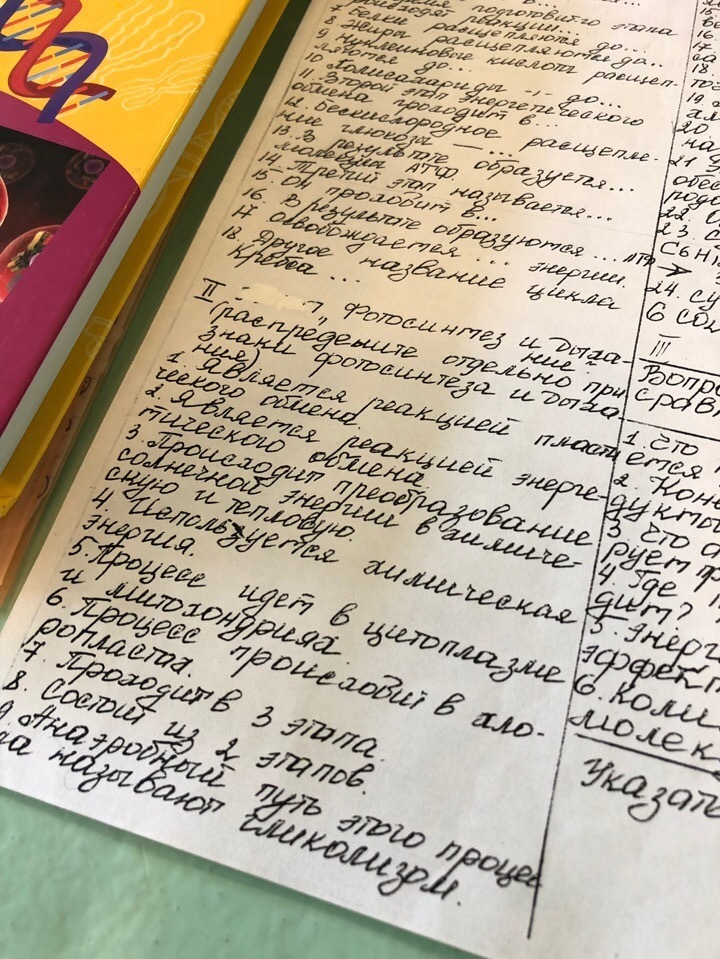 подготовит. этапа
происходят реакции...
7 Белки расщепляются до...
8 Жиры расщепляются до...
9 Нуклеиновые кислоты расщеп-
ляются до...
10 Полисахариды -"- до...
11. Второй этап энергетического
обмена проходит в...
12. Бескислородное расщепле-
ние глюкозы — ...
13. В результате образуется...
молекул АТФ.
14 Третий этап называется...
15 Он проходит в...
16. В результате образуются... АТФ
17 Освобождается ... энергии.
18. Другое название цикла
Кребса ...
II Фотосинтез и дыха-
ние"
(распределите отдельно при
знаки фотосинтеза и дыха
ния)
1. Является реакцией пласти
ческого обмена.
2. Является реакцией энерге-
тического обмена
3. Происходит преобразование
солнечной энергии в химиче-
скую и тепловую.
4. Используется химическая
энергия.
5. Процесс идет в цитоплазме
и митохондриях
6. Процесс происходит в хло-
ропластах.
7. Проходит в 3 этапа.
8. Состоит из 2 этапов.
9 Анаэробный путь этого процес
са называют гликолизом.
15
16
17
18.
19
20
21
22
23
24.
6
III
Вопро
срав
1. Что
ется
2. Кон
дукты
3 Что
рует
4. Где
дит?
5. Энерг
эффект
6. Коли
молек
Указат